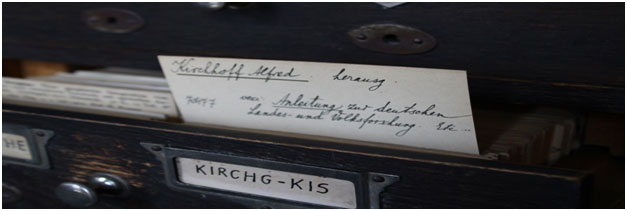 Kirchhoff Alfred. herausg.
Anleitung zur deutschen
Landes- und Volksforschung. Etc...
HE
KIRCHG-KIS